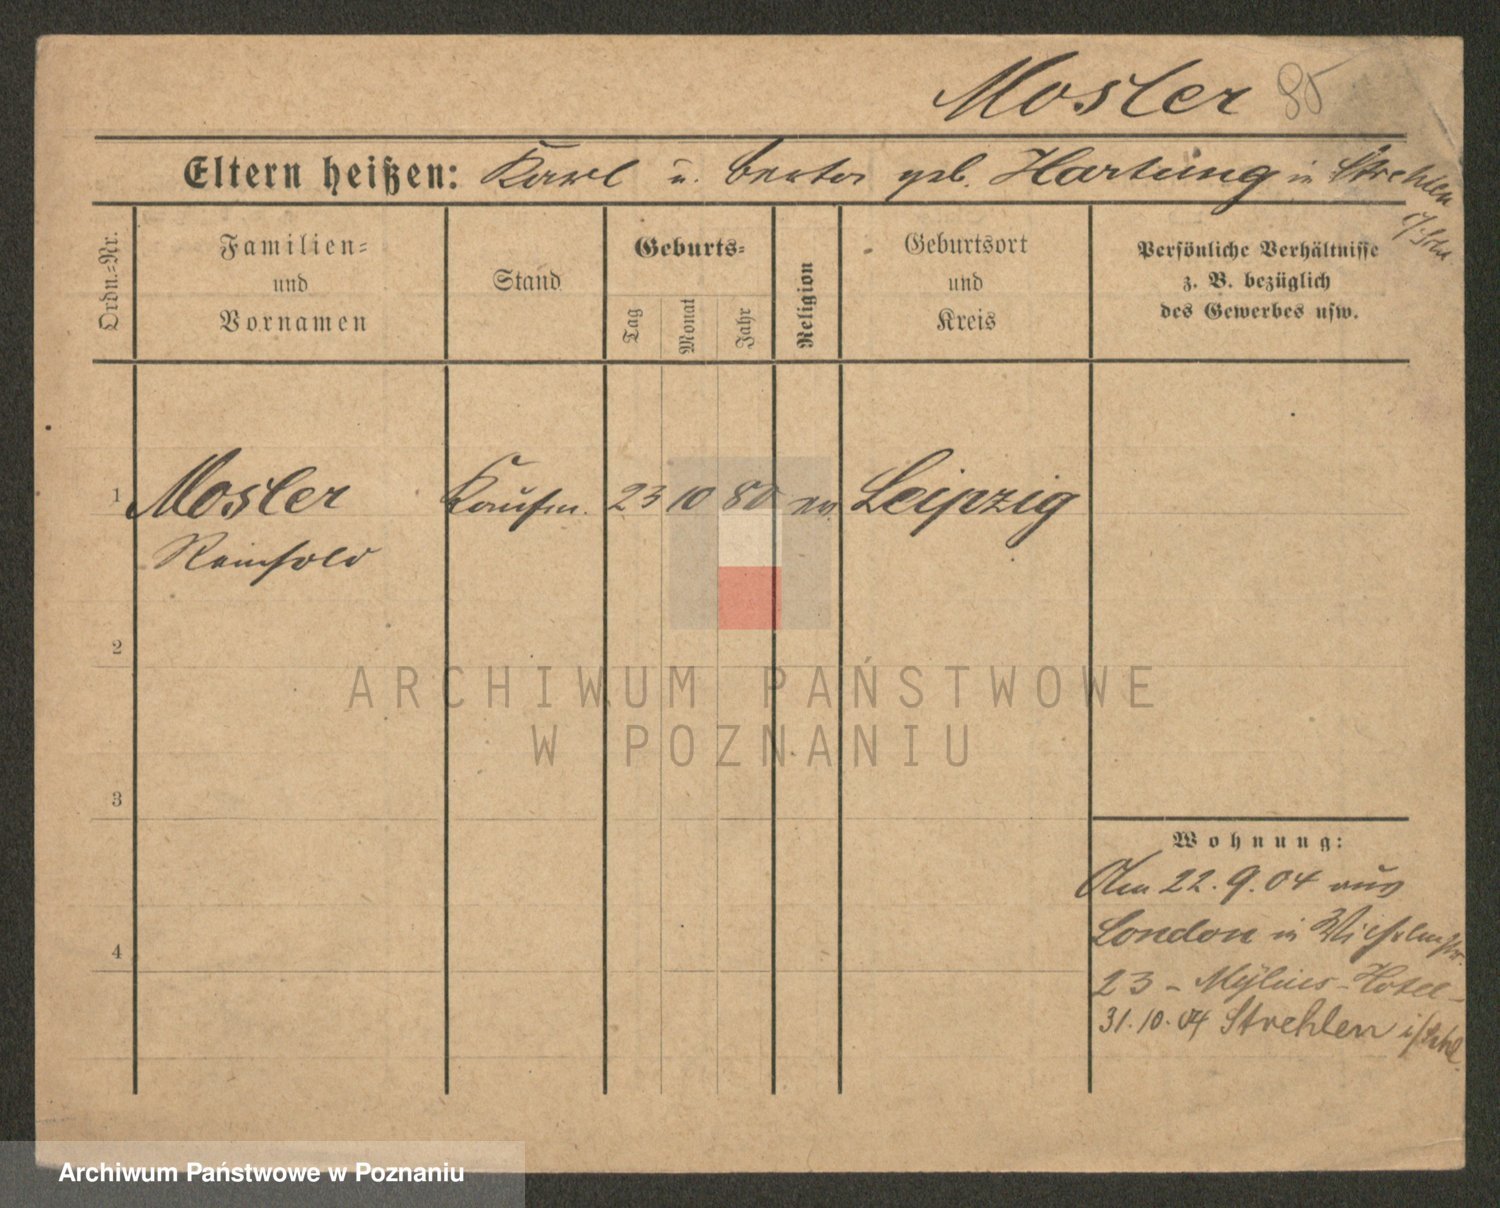 Mosler 80
Eltern heißen: Karl u. Berta geb. Hartung in Strehlen
i/Schl.
Ordn.=Nr.
Familien=
und
Vornamen
Stand
Geburts=
Tag
Monat
Jahr
Religion
Geburtsort
und
Kreis
Persönliche Verhältnisse
z. B. bezüglich
des Gewerbes usw.
1 Mosler Kaufm. 23 10 80 ev. Leipzig
Reinhold
2
3
4
Wohnung:
Am 22.9.04 aus
London in Wilhelmstr.
23 - Mylius-Hotel -
31.10.04 Strehlen i/Schl.
ARCHIWUM PAŃSTWOWE
W POZNANIU
Archiwum Państwowe w Poznaniu